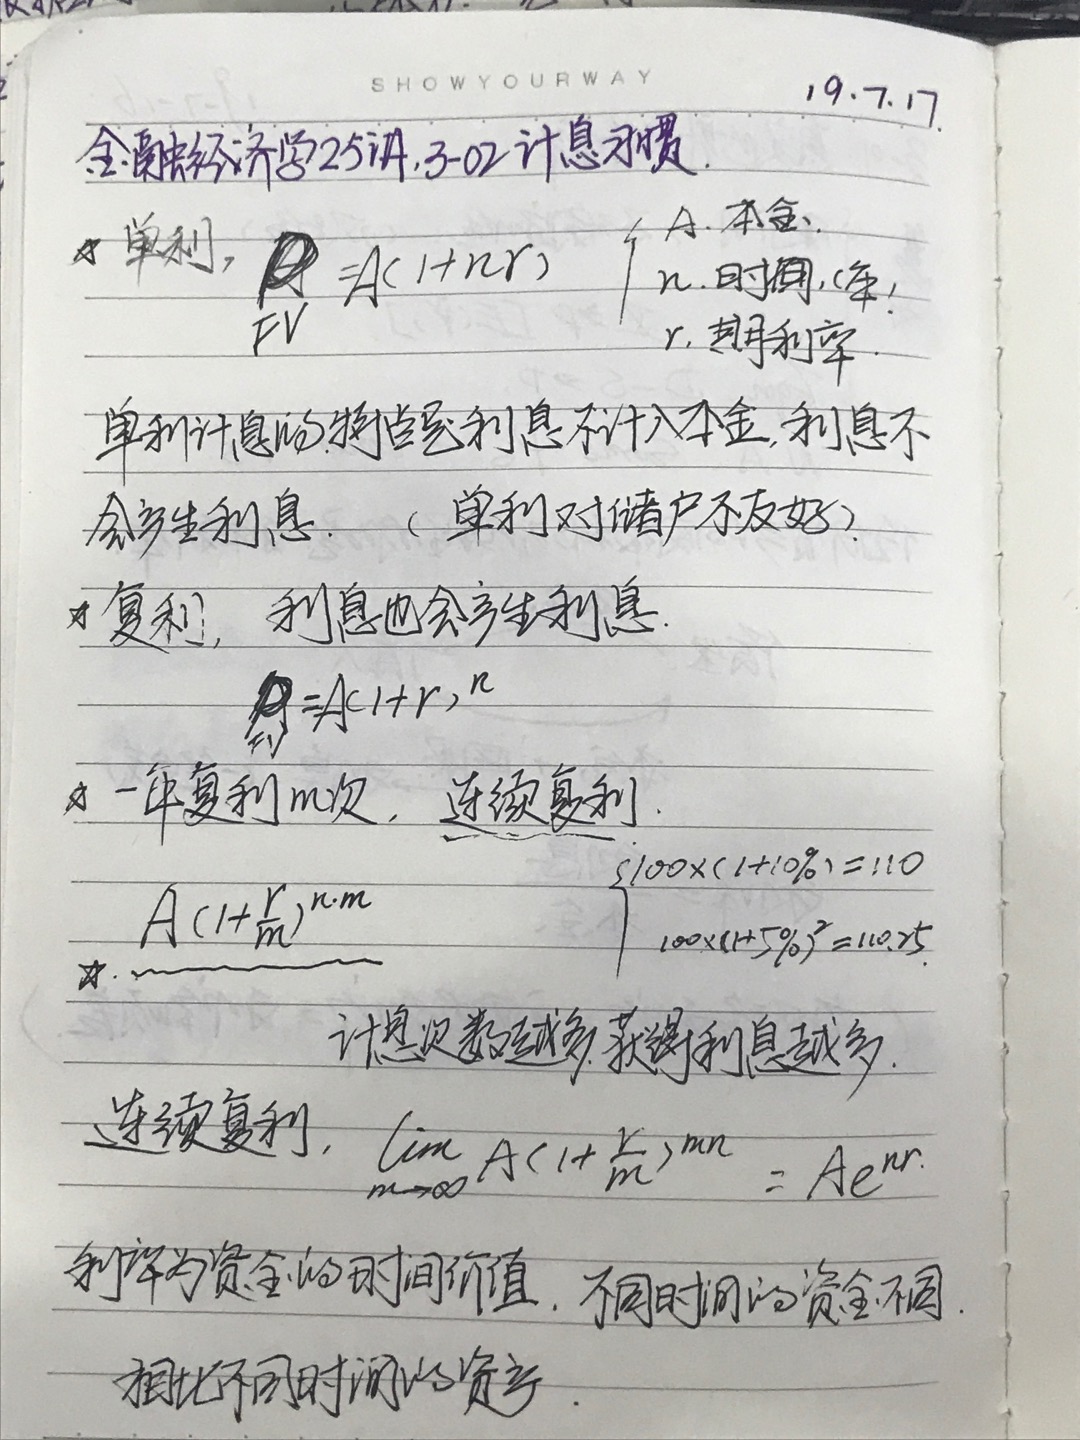 SHOWYOURWAY
19.7.17
金融经济学25讲,3-02计息习惯.
☆ 单利, =A(1+nr)
FV
A.本金.
n.时间.(年)
r.期利率.
单利计息的特点是利息不计入本金,利息不
会产生利息. (单利对储户不友好)
☆ 复利, 利息也会产生利息.
=A(1+r)^n
FV
☆ 一年复利m次, 连续复利.
A(1+r/m)^n·m
100×(1+10%)=110
100×(1+5%)^2=110.25.
☆.
计息次数越多,获得利息越多.
连续复利, lim m→∞ A(1+r/m)^mn = Ae^nr.
利率为资金的时间价值, 不同时间的资金不同.
相比不同时间的资产.